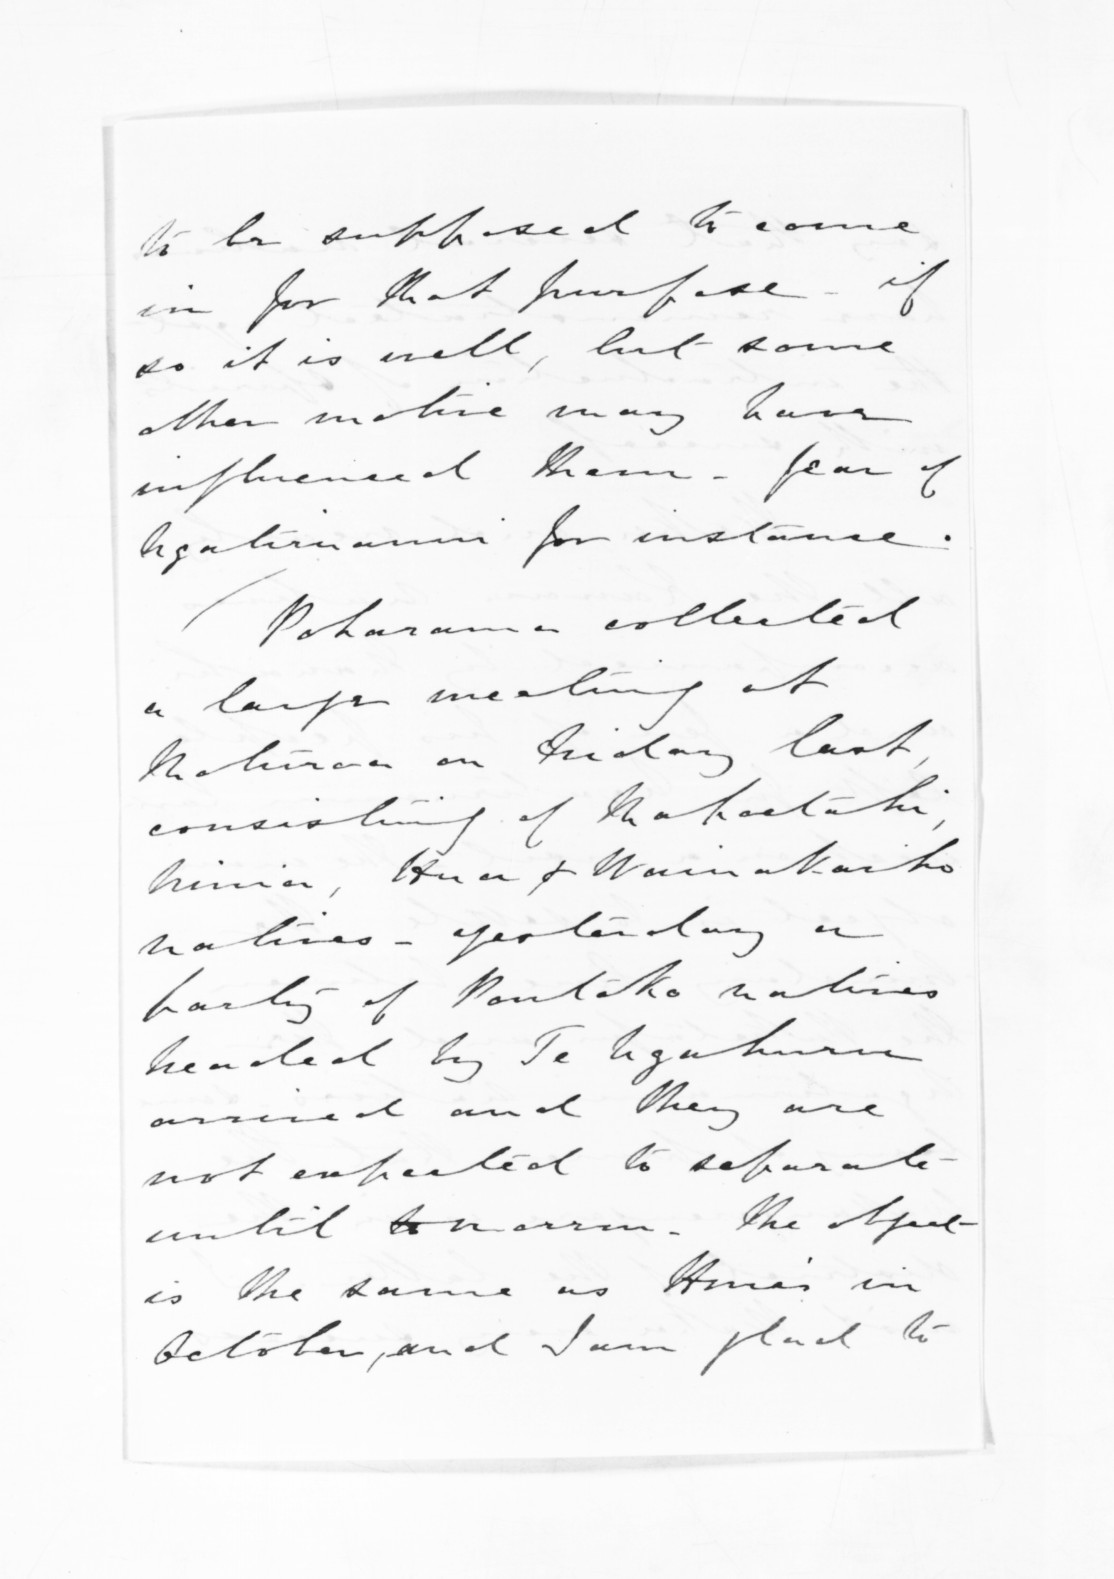 to be supposed to come
in for that purpose - if
so it is well, but some
other motive may have
influenced them - fear of
Ngatiruanui for instance.
Poharama collected
a large meeting at
Moturoa on Friday last,
consisting of Mahoetahi,
Ninia, Hua & Waiwakaiho
natives - yesterday a
party of Poutoko natives
headed by Te Ngahuru
arrived and they are
not expected to separate
until tomorrow. The object
is the same as Hone's in
October, and I am glad to